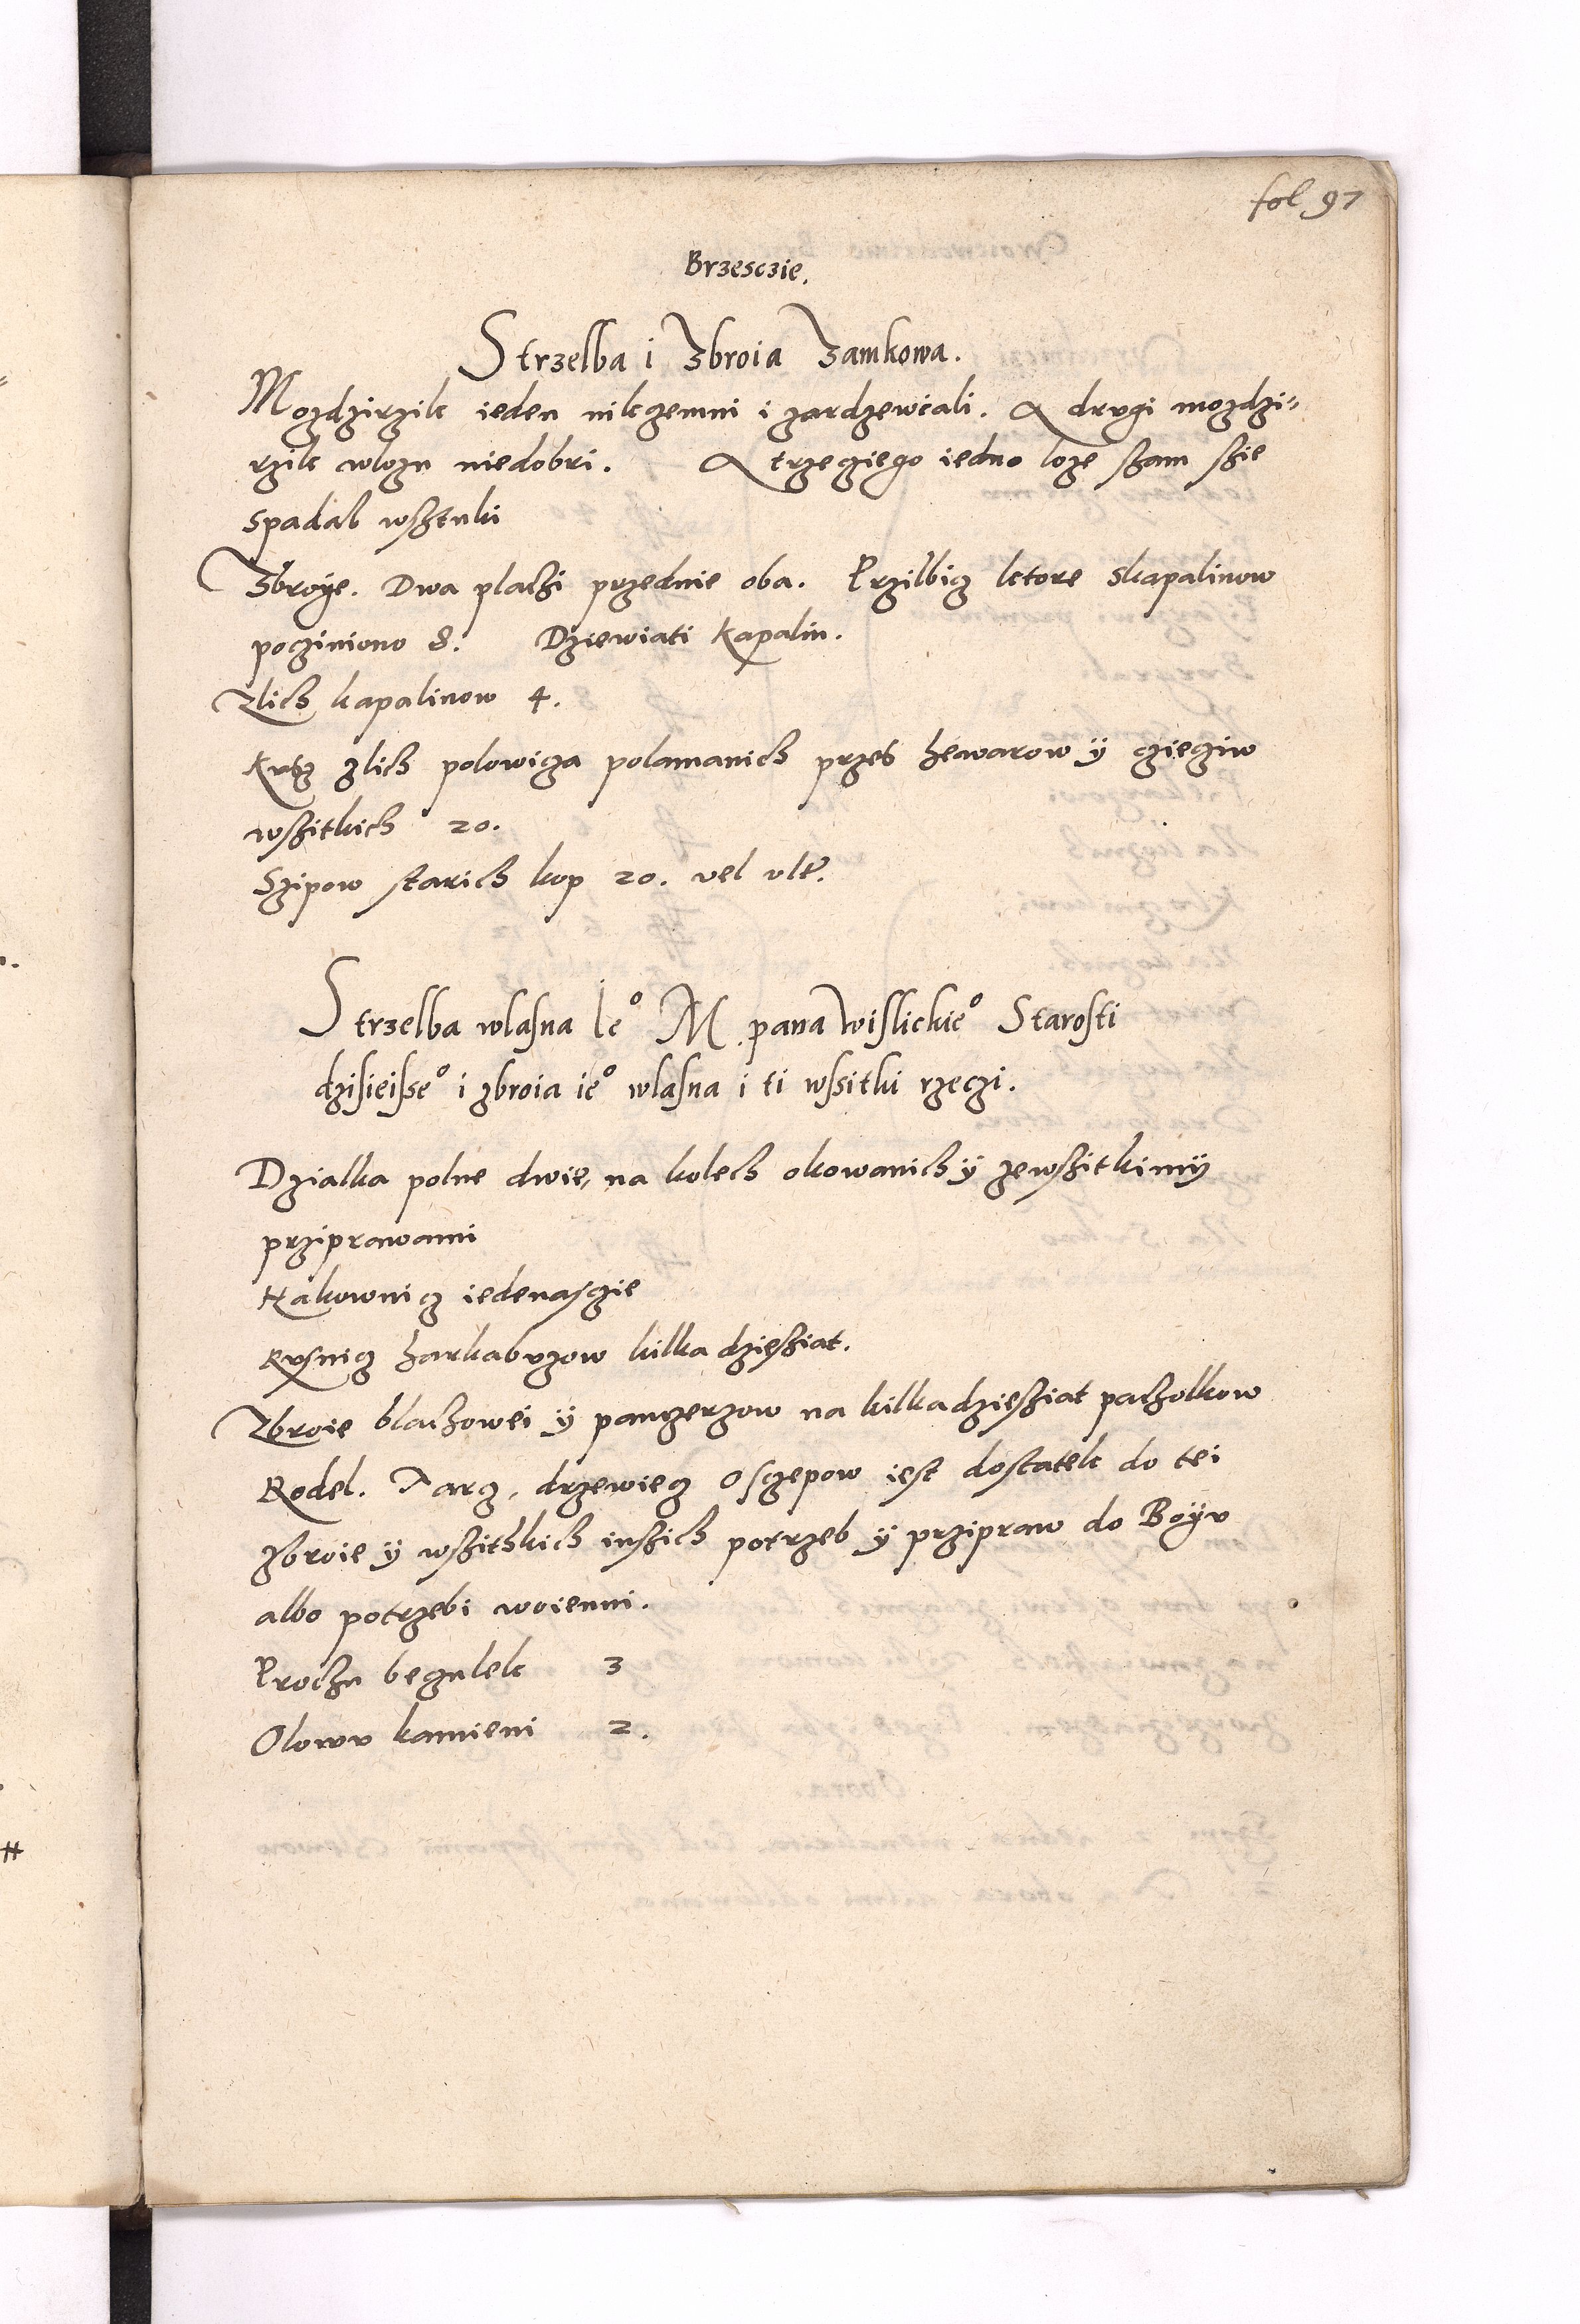 fol 97
Brzesczie.
Strzelba i Zbroia Zamkowa.
Mozdzirzik ieden nikczemni i zardzewiali. A drugi mozdzi=
rzik wlozu niedobri. A trzecziego iedno loze szam szie
spadal wsztuki
Zbroye. Dwa plachi przednie oba. Przilbicz ktore skapalinow
pocziniono 8. Dziewiati Kapalin.
Zlich kapalinow 4.
Kusz zlich polowicza polamanich przes hewarow ÿ czieciw
wszitkich 20.
Szipow starich kop 20. vel ult.
Strzelba wlasna Ie° M. pana Wislickie° Starosti
dzisieisse° i zbroia ie° wlasna i ti wssitki rzeczi.
Dzialka polne dwie, na kolech okowanich ÿ zewszitkimÿ
prziprawami
Hakownicz iedenasczie
Rusnicz harkabuzow kilka dziesziat.
Zbroie blachowei ÿ panczerzow na kilkadziesziat pacholkow
Rodel. Tarcz, drzewiecz Osczepow iest dostatek do tei
zbroie ÿ wszithkich inszich potrzeb ÿ przipraw do Boÿu
albo potrzebi woienni.
Prochu beczulek 3
Olowu kamieni 2.